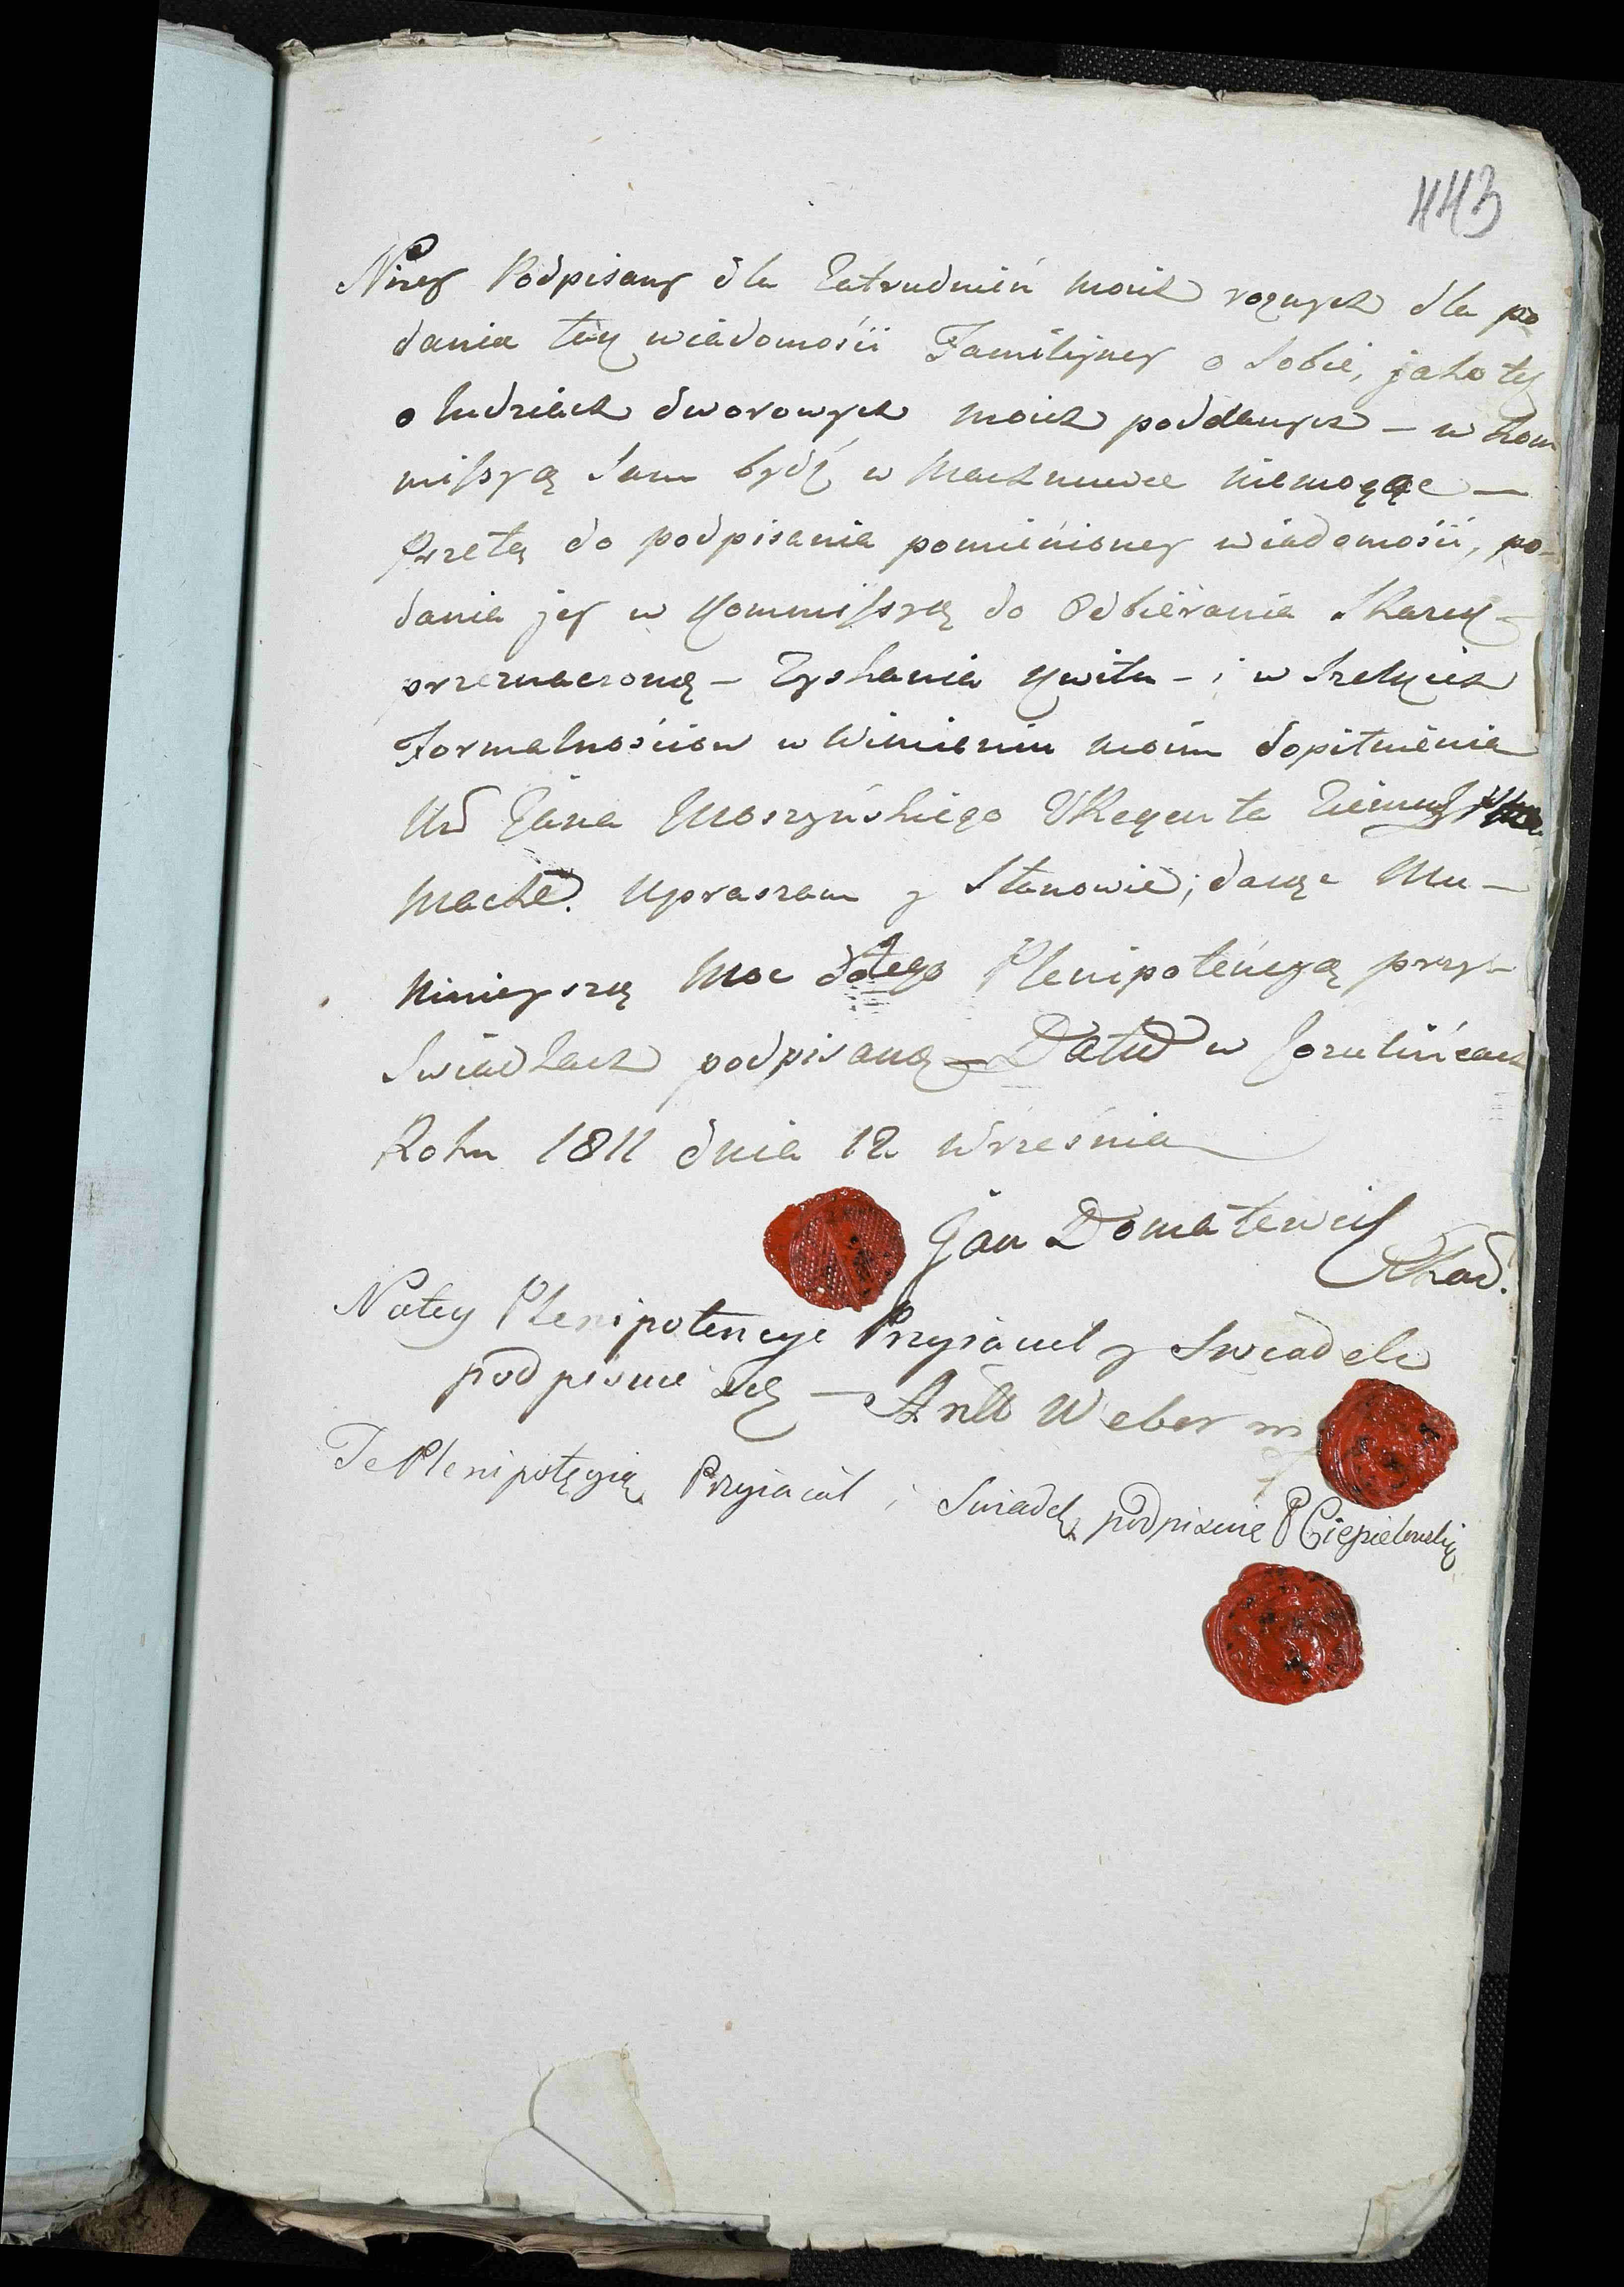 443
Niżey Podpisany dla Zatrudnień moich roznych dla po
dania tey wiadomośći Familijney o Sobie, jako też
o ludziach dworowych moich poddanych – w Kom
missyą Sam bydź w Machnuwce niemogąc –
Przetą do podpisania pomienioney wiadomośći, po-
dania jey w Kommissyą do Odbierania Skazek –
przeznaczoną – Zyskania Kwitu – i w Szelkich
Formalnościow w Wimieniu moim dopilnienia
Jana Moszyńskiego Regenta Ziemsk
Mach. Upraszam y Stanowię; daiąc Mu –
Ninieyszą Moc dotego Plenipotencyą przy
Swiadkach podpisaną – Datt w
Roku 1811 dnia 12 Września
Jan Domatewicz
Natey Plenipotencye Przyiaciel y Swiadek
podpisuie się – Antt Weber mp
Te Plenipotęcyią Przyiaciel i Swiadek podpisuie P Ciepielowski